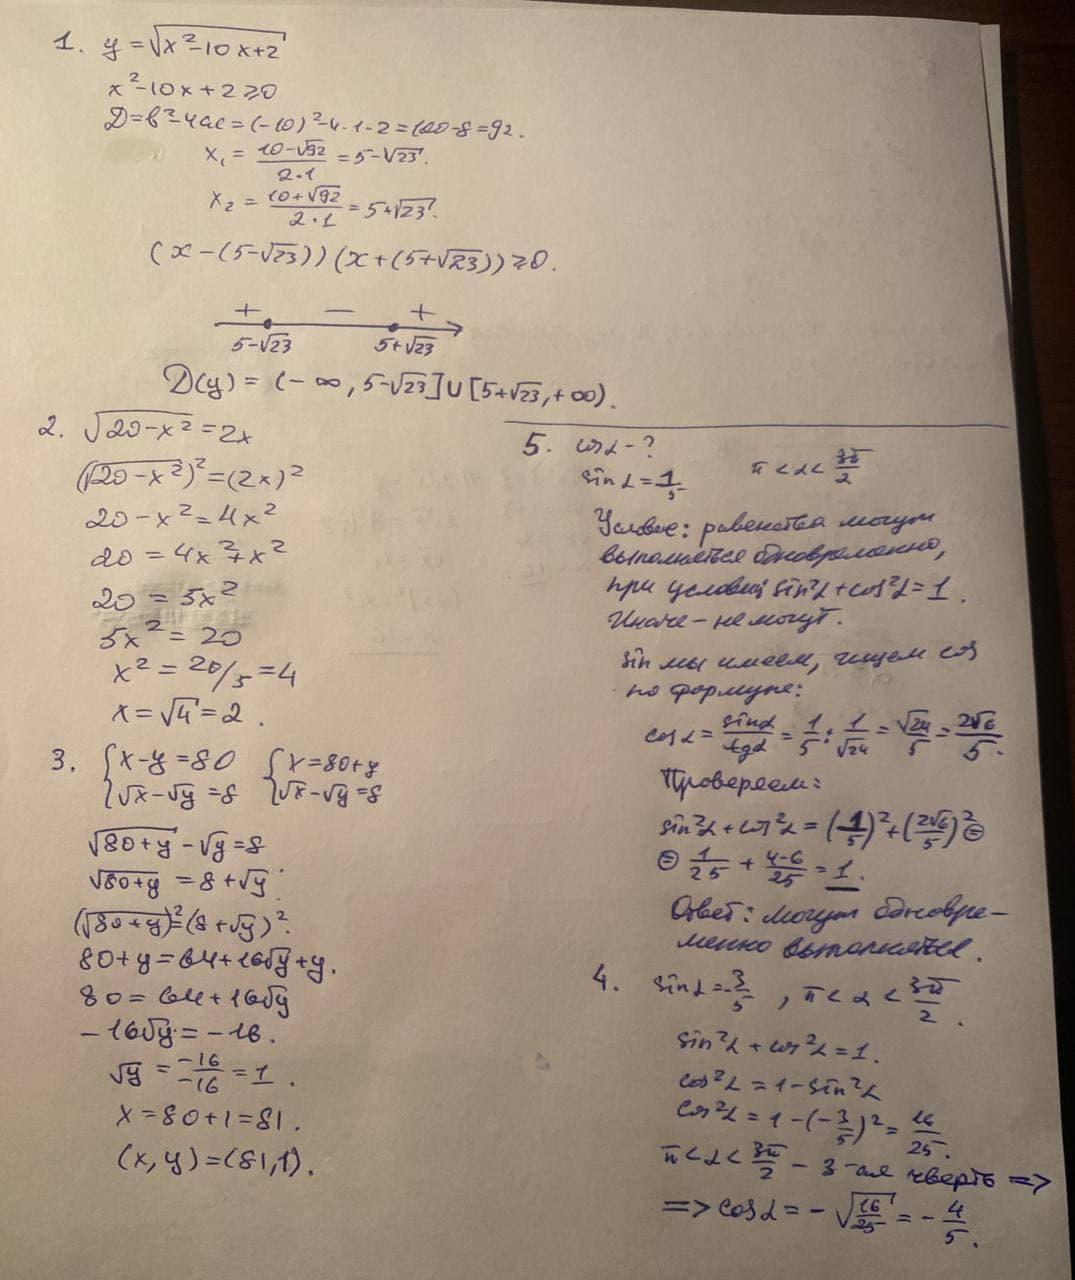 1. y = √x²-10x+2
x²-10x+2 ≥ 0
D=b²-4ac = (-10)²-4·1·2=100-8=92.
x₁ = (10-√92)/(2·1) = 5-√23.
x₂ = (10+√92)/(2·1) = 5+√23.
(x-(5-√23))(x+(5+√23)) ≥ 0.
+ — +
5-√23 5+√23
D(y) = (-∞, 5-√23] ∪ [5+√23, +∞).
2. √20-x² = 2x
(√20-x²)² = (2x)²
20-x² = 4x²
20 = 4x²+x²
20 = 5x²
5x² = 20
x² = 20/5 = 4
x = √4 = 2.
3. {x-y=80 {x=80+y
{√x-√y=8 {√x-√y=8
√80+y - √y = 8
√80+y = 8+√y.
(√80+y)² = (8+√y)².
80+y = 64+16√y+y.
80 = 64+16√y
-16√y = -16.
√y = -16/-16 = 1.
x = 80+1 = 81.
(x,y) = (81,1).
5. cosα - ?
sinα = 1/5 π<α<3π/2
Условие: равенства могут
выполняться одновременно,
при условии sin²α+cos²α=1.
Иначе - не могут.
sin мы имеем, ищем cos
по формуле:
cosα = sinα/tgα = 1/5 : 1/√24 = √24/5 = 2√6/5.
Проверяем:
sin²α+cos²α = (1/5)²+(2√6/5)² =
= 1/25 + 4·6/25 = 1.
Ответ: могут одновре-
менно выполняться.
4. sinα = -3/5, π<α<3π/2.
sin²α+cos²α=1.
cos²α = 1-sin²α
cos²α = 1-(-3/5)² = 16/25.
π<α<3π/2 - 3-ая чверть =>
=> cosα = -√16/25 = -4/5.